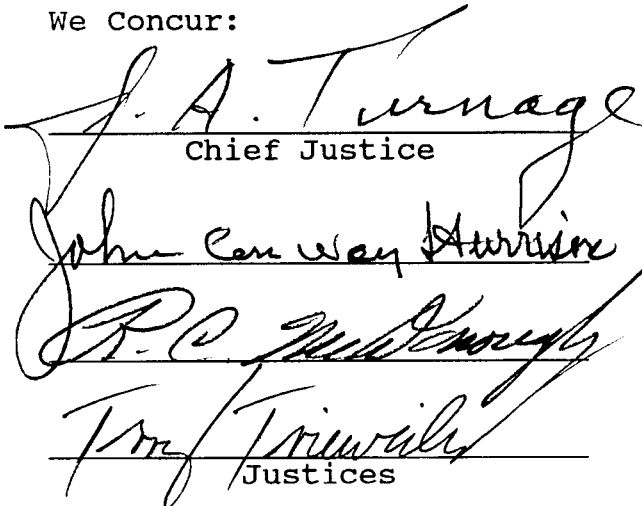 We Concur:
J. A. Turnage
Chief Justice
John Conway Harrison
R. C. McDonough
Terry Trieweiler
Justices